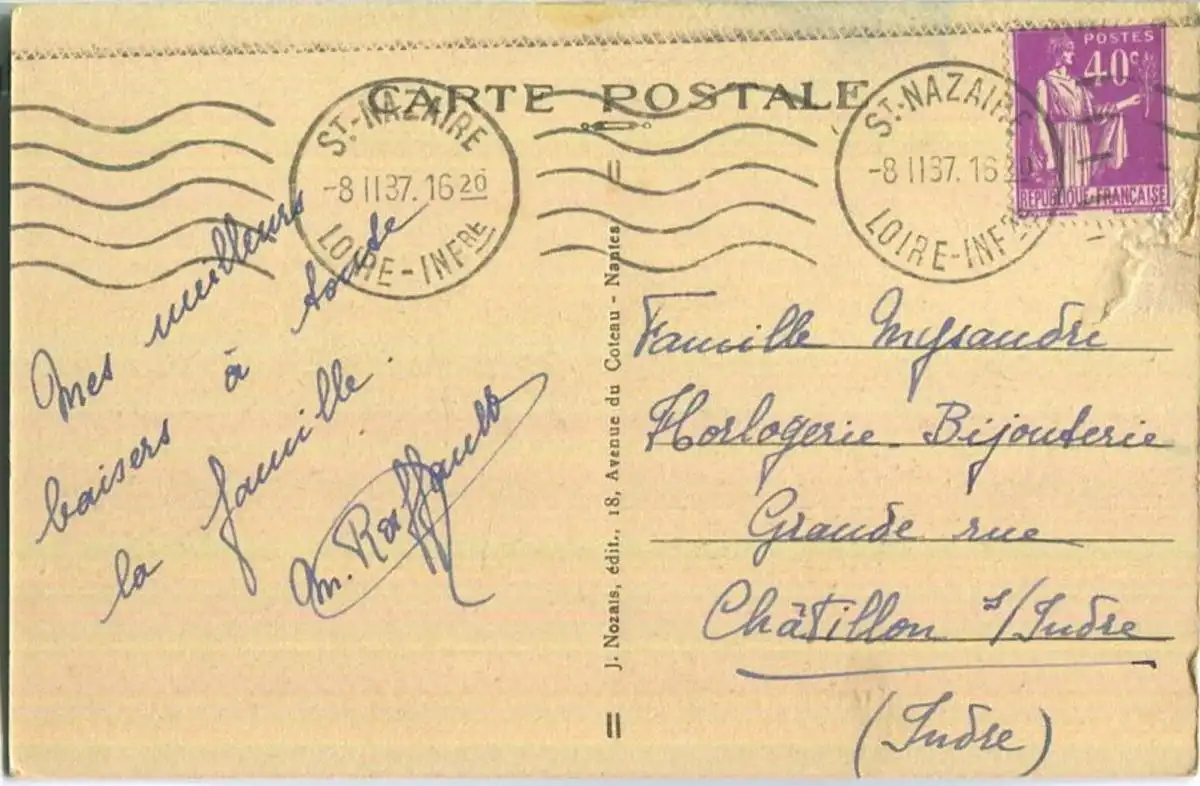 CARTE POSTALE
ST-NAZAIRE
-8 II 37. 16 20
LOIRE-INFRE
ST-NAZAIRE
-8 II 37. 16 20
LOIRE-INFRE
POSTES
40c
REPUBLIQUE FRANCAISE
Mes meilleurs
baisers à toute
la famille.
M. Raffault
J. Nozais, édit., 18, Avenue du Coteau - Nantes
Famille Mysandre
Horlogerie - Bijouterie
Grande rue
Châtillon s/Indre
(Indre)